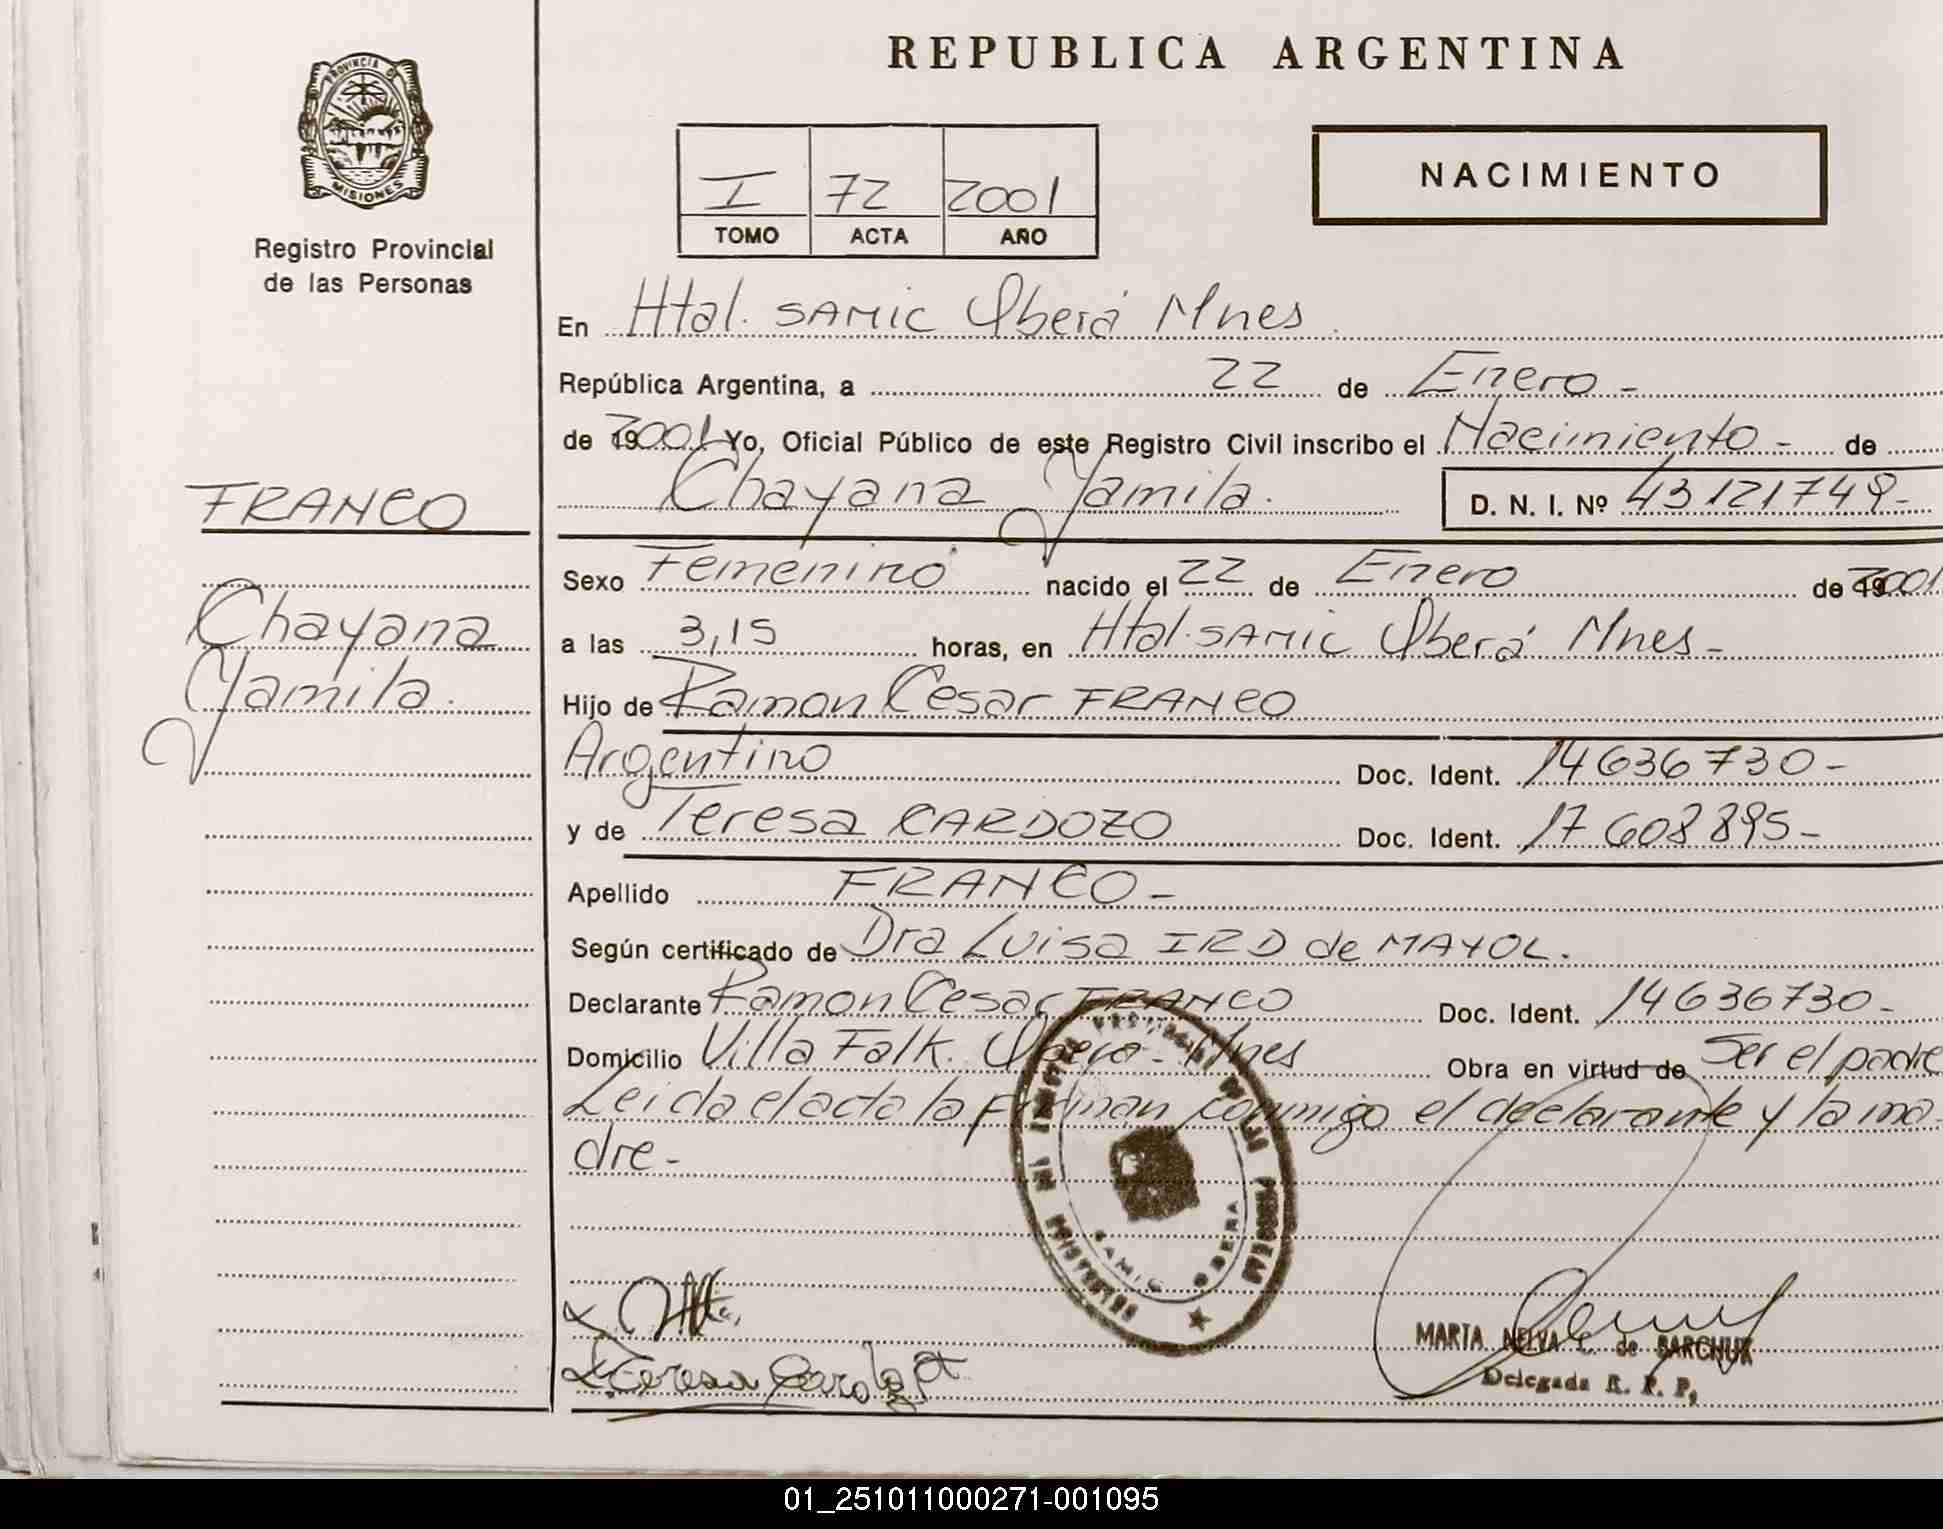 REPUBLICA ARGENTINA
PROVINCIA DE
MISIONES
Registro Provincial
de las Personas
I 72 2001
TOMO ACTA AÑO
NACIMIENTO
En Htal. SAMIC Oberá Mnes.
República Argentina, a 22 de Enero -
de 19 2001 Yo, Oficial Público de este Registro Civil inscribo el Nacimiento - de
Chayana Yamila. D. N. I. Nº 43121749-
FRANCO
Chayana
Yamila.
Sexo Femenino nacido el 22 de Enero de 19 2001
a las 3,15 horas, en Htal. SAMIC Oberá Mnes -
Hijo de Ramon Cesar FRANCO
Argentino Doc. Ident. 14636730-
y de Teresa CARDOZO Doc. Ident. 17608895-
Apellido FRANCO -
Según certificado de Dra Luisa IRD de MAYOL.
Declarante Ramon Cesar FRANCO Doc. Ident. 14636730-
Domicilio Villa Falk. Obera - Mnes Obra en virtud de Ser el padre
Leida el acta la firman conmigo el declarante y la ma-
dre -
SAMIC OBERA
Teresa
MARTA NELVA L. de BARCHUK
Delegada R. P. P.
01_251011000271-001095